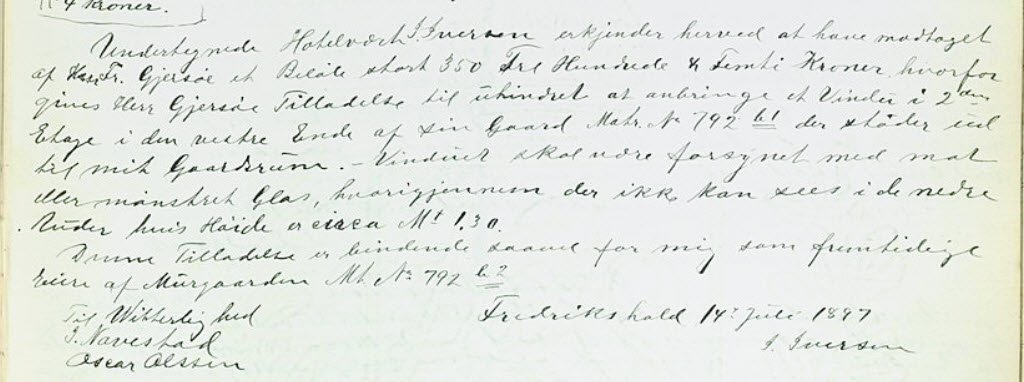 4 Kroner.
Undertegnede Hotelvært I. Iversen erkjender herved at have modtaget
af Fr. Gjersøe et Beløb stort 350 Tre Hundrede & Femti Kroner, hvorfor
gives Herr Gjersøe Tilladelse til uhindret at anbringe et Vindu i 2den
Etage i den vestre Ende af sin Gaard Matr. No 792 b1 der støder ud
til mit Gaardsrum. - Vinduet skal være forsynet med mat
eller mønstret Glas, hvorigjennem der ikke kan sees i de nedre
Ruder hvis Høide er circa Mt 1.30.
Denne Tilladelse er bindende saavel for mig som fremtidige
Eiere af Murgaarden Mt. No 792 b2
Til Witterlighed Fredrikshald 14. Juli 1897
J. Navestad I. Iversen
Oscar Olssen